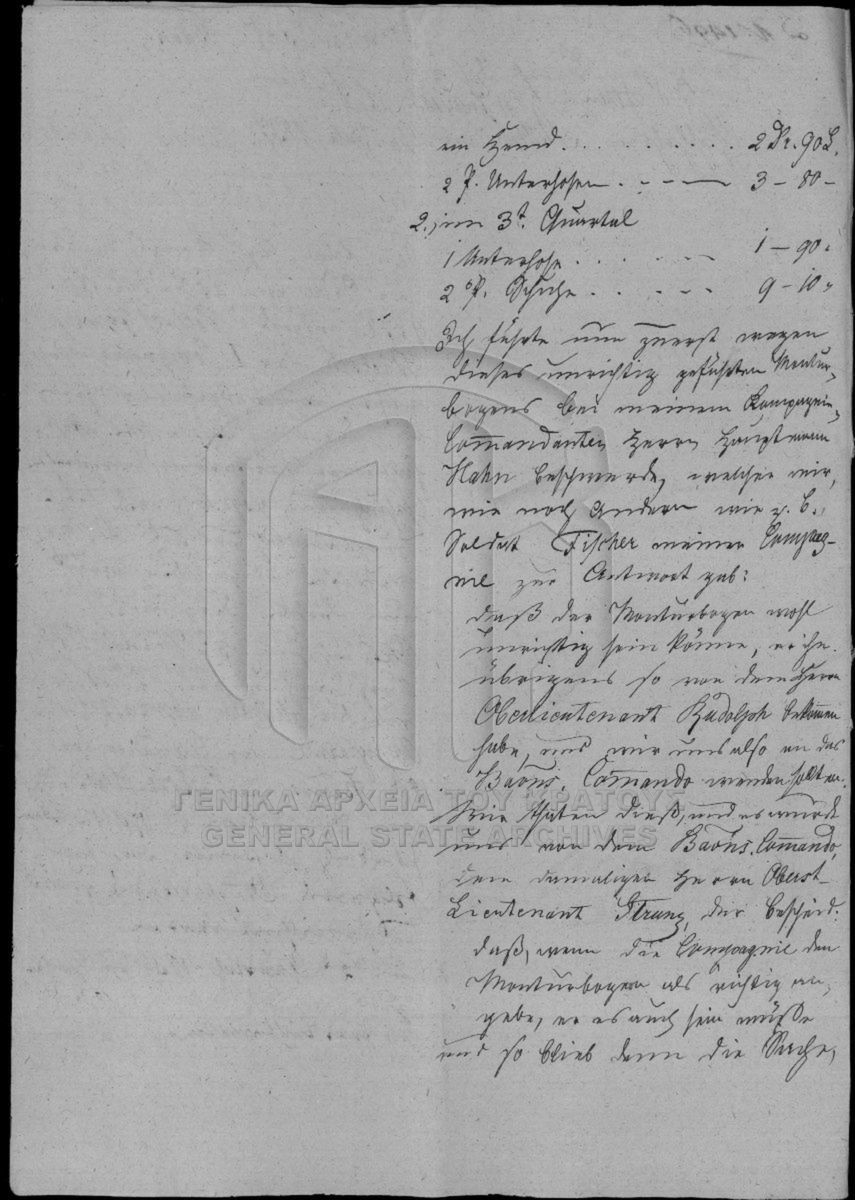 ein Hemd . . . . . . . . . . 2 Dr. 90 L.
2 P. Unterhosen . - . - — 3 – 80 –
2., im 3t. Quartal
1 Unterhose . . . . . — 1 – 90 "
2 P. Schuhe . . . - . . 9 – 10 "
Ich führte nun zuerst wegen
dieses unrichtig geführten Montur-
bogens bei meinem Kompagnie-
Commandanten Herrn Hauptmann
Hahn Beschwerde, welcher mir,
wie noch Andern wie z. B.,
Soldat Fischer meiner Compag-
nie zur Antwort gab:
daß der Monturbogen wohl
unrichtig sein könne, er ihn
übrigens so von dem Herrn
Oberlieutenant Rudolph bekommen
habe, und wir uns also an das
Baons. Commando wenden sollten.
Wir thaten dieß, und es wurde
uns von dem Baons. Commando,
dem damaligen Herrn Oberst-
Lieutenant Strunz, der Bescheid:
daß, wenn die Compagnie den
Monturbogen als richtig an-
gebe, er es auch sein müße
und so blieb denn die Sache,
ΓΕΝΙΚΑ ΑΡΧΕΙΑ ΤΟΥ ΚΡΑΤΟΥΣ
GENERAL STATE ARCHIVES